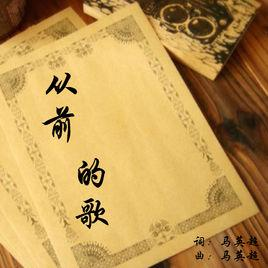 从前
的歌
词：马英超
曲：马英超